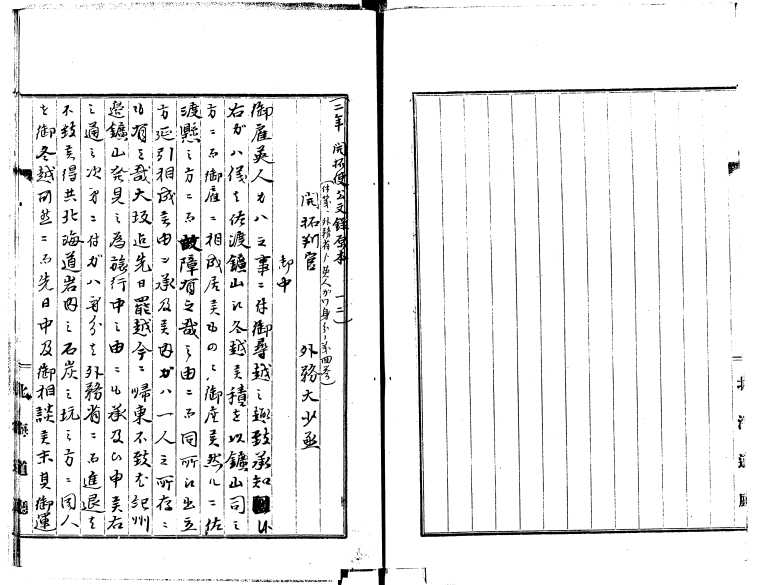 二年 開拓使公文録原本 一二
(件第 外務省ト英人ガワ身分ノ第四号)
開拓判官 外務大少丞
御中
御雇英人ガハ之事ニ付御尋越之趣致承知候
右ガハ儀者佐渡鑛山江冬越美積を以鑛山司之
方ニ而御雇ニ相成居美由のく御座美然ルニ佐
渡縣之方ニ而故障有之哉之由ニ而同所江出立
方延引相成美由ハ承及美内ガハ一人之所存ニ
も有之哉大坂迄先日罷越今ニ帰東不致尤紀州
邊鑛山発見之為旅行中之由ニも承及ひ申美右
之通之次第ニ付ガハ身分者外務省ニ而進退者
不致美得共北海道岩内之石炭之坑之方ニ同人
を御冬越可然ニ而先日中及御相談美末具御運
北海道廳
北海道廳